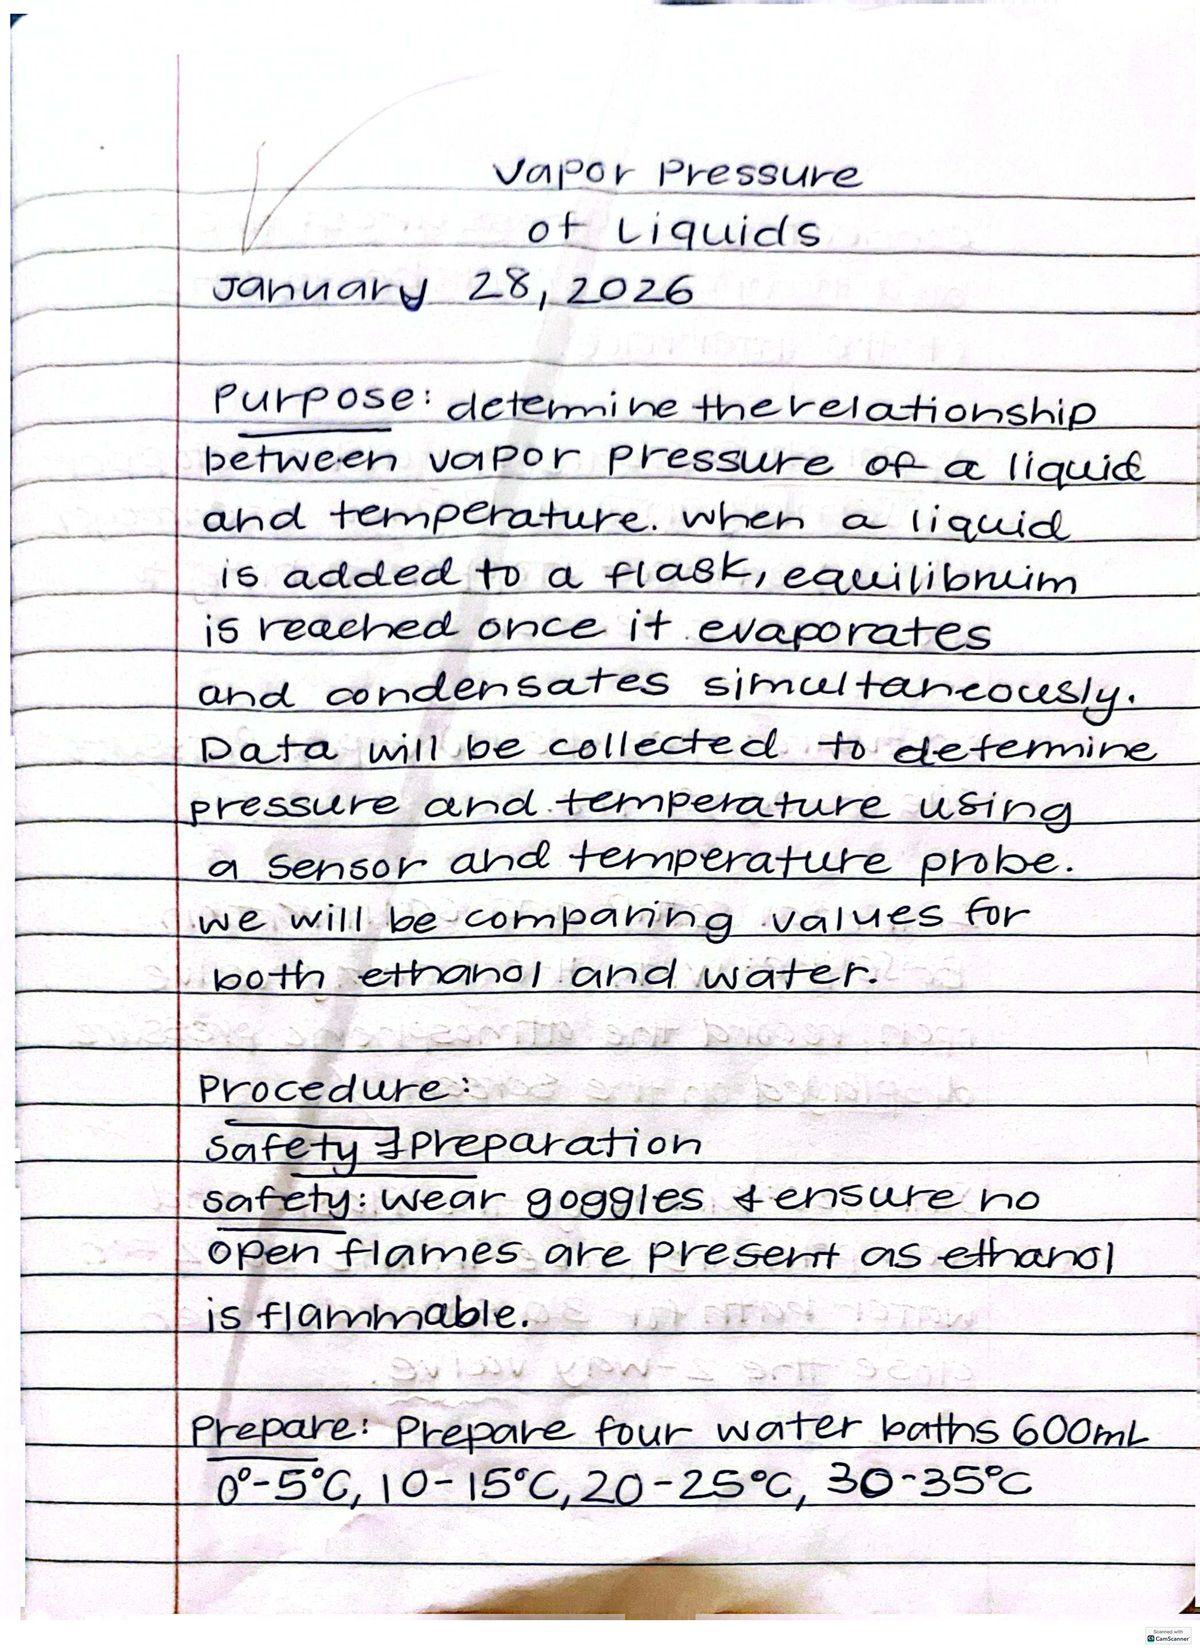 Vapor Pressure
of Liquids
January 28, 2026
Purpose: determine the relationship
between vapor pressure of a liquid
and temperature. when a liquid
is added to a flask, equilibruim
is reached once it evaporates
and condensates simultaneously.
Data will be collected to determine
pressure and temperature using
a sensor and temperature probe.
we will be comparing values for
both ethanol and water.
Procedure:
Safety & Preparation
Safety: wear goggles & ensure no
open flames are present as ethanol
is flammable.
Prepare: Prepare four water baths 600mL
0°-5°C, 10-15°C, 20-25°C, 30-35°C
Scanned with
CamScanner